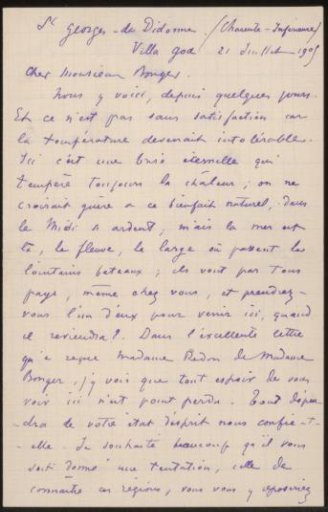 St Georges-de-Didonne (Charente-Inférieure)
Villa Goa 21 Juillet 1905
Cher Monsieur Bonger.
Nous y voici, depuis quelques jours.
Et ce n'est pas sans satisfaction car
la température devenait intolérable.
Ici c'est une brise éternelle qui
tempère toujours la chaleur ; on ne
croirait guère à ce bienfait naturel, dans
le Midi si ardent, mais la mer est
là, le fleuve, le large où passent les
lointains bateaux ; ils vont par tous
pays, même chez vous, et prendrez-
vous l'un d'eux pour venir ici, quand
il reviendra ? Dans l'excellente lettre
qu'a reçue Madame Redon de Madame
Bonger, j'y vois que tout espoir de vous
voir ici n'est point perdu. Tout dépen-
-dra de votre état d'esprit nous confie-t-
-elle. Je souhaite beaucoup qu'il vous
soit donné une tentation, celle de
connaître ces régions, vous vous y